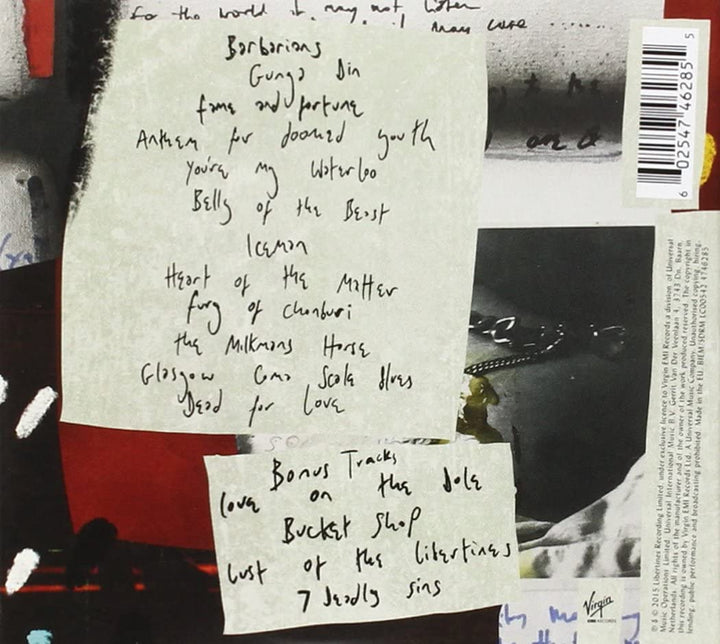 for the world it may not listen
may care ......
Barbarians
Gunga Din
fame and fortune
Anthem for doomed youth
You're my Waterloo
Belly of the Beast
Iceman
Heart of the Matter
fury of chonburi
the Milkmans Horse
Glasgow Coma Scale Blues
Dead for Love
Bonus Tracks
love on the dole
Bucket Shop
Lust of the Libertines
7 deadly sins
6 02547 46285 5
℗ & © 2015 Libertines Recording Limited, under exclusive licence to Virgin EMI Records a division of Universal
Music Operations Limited. Universal International Music B.V. Gerrit van Der Veenlaan 4, 3743 Dn, Baarn,
Netherlands. All rights of the manufacturer and of the owner of the work produced reserved. The copyright in
this recording is owned by Virgin EMI Records Ltd. A Universal Music Company. Unauthorised copying, hiring,
lending, public performance and broadcasting prohibited. Made in the EU. BIEM/SDRM LC00542 4746285
Virgin
EMI RECORDS